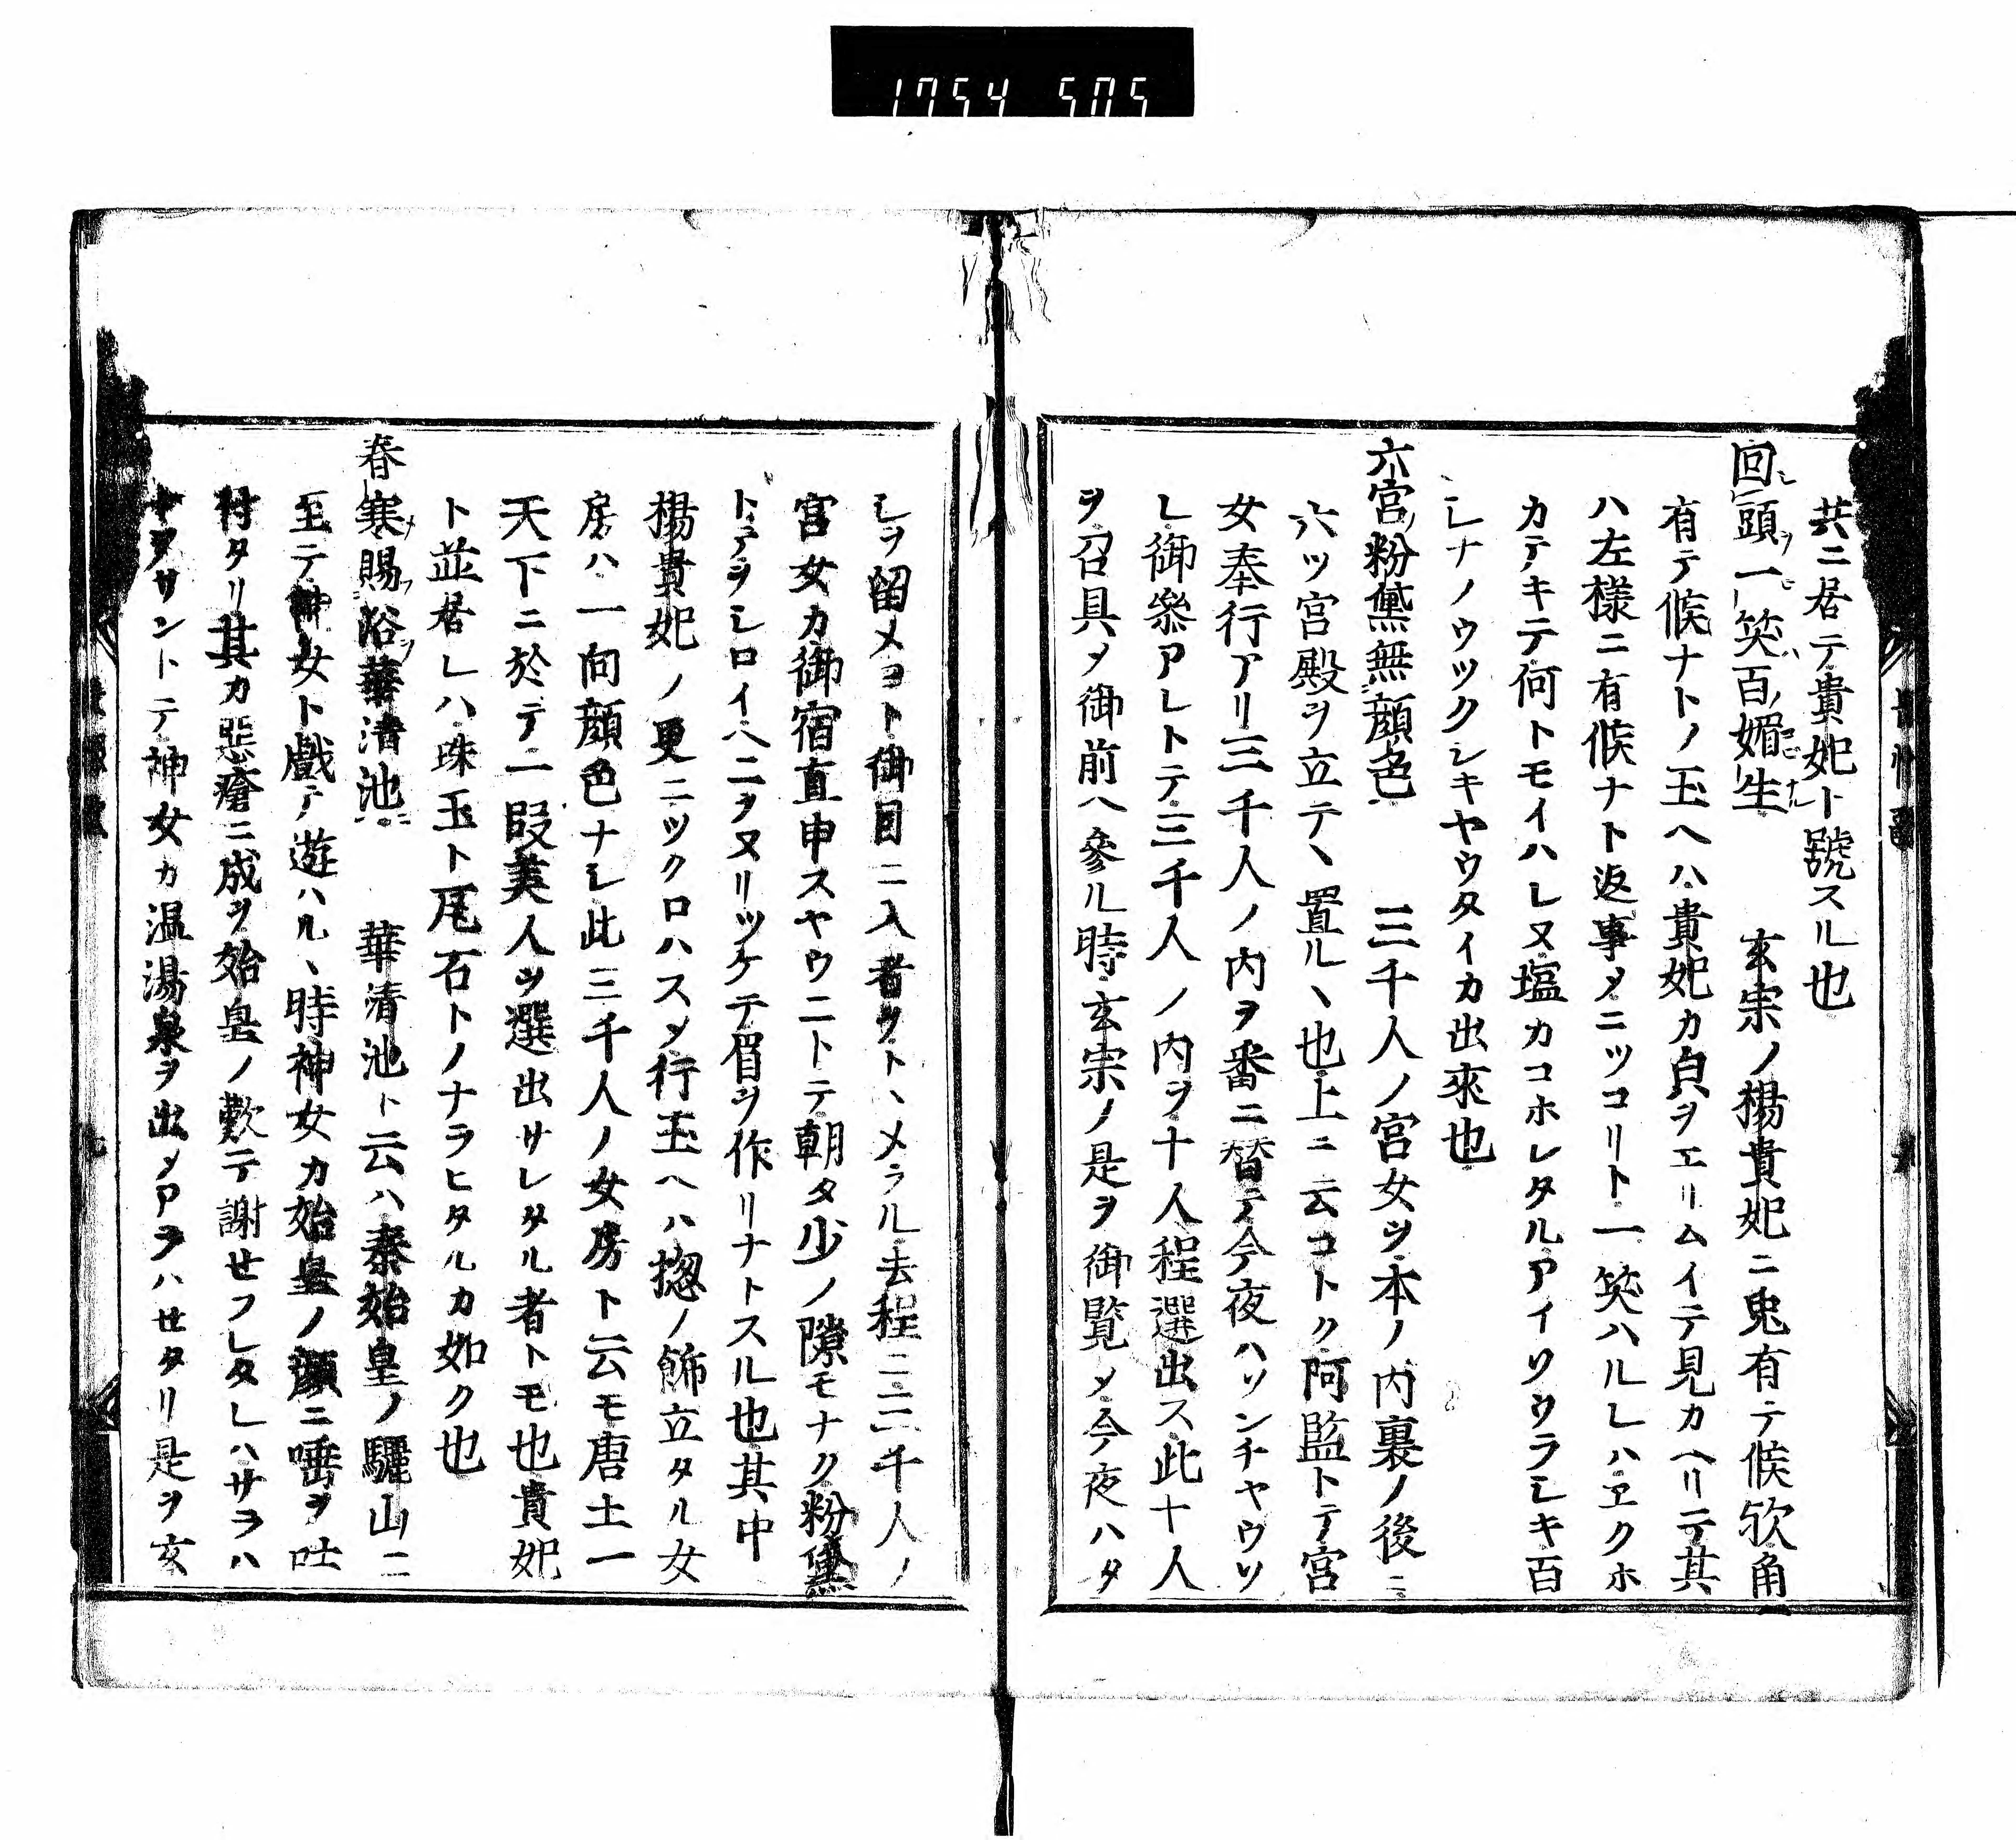 1754 505
共ニ居テ貴妃ト號スル也
回頭一笑百媚生　玄宗ノ楊貴妃ニ兎有テ候欤角
有テ候ナトノ玉ヘハ貴妃カ皃ヲエリムイテ見カヘリテ其
ハ左様ニ有候ナト返事メニツコリト一笑ハルレハヱクホ
カテキテ何トモイハレヌ塩カコホレタルアイソウラシキ百
シナノウツクシキヤウタイカ出來也
六宮粉黛無顔色　三千人ノ宮女ヲ本ノ内裏ノ後ニ
六ツ宮殿ヲ立テヽ置ルヽ也上ニ云コトク阿監トテ宮
女奉行アリ三千人ノ内ヲ番ニ替テ今夜ハソンチヤウソ
レ御參アレトテ三千人ノ内ヲ十人程選出ス此十人
ヲ召具メ御前ヘ參ル時玄宗ノ是ヲ御覧メ今夜ハタ
レヲ留メヨト御目ニ入者ヲトヽメラル去程ニ三千人ノ
宮女カ御宿直申スヤウニトテ朝タ少ノ隙モナク粉黛
トテヲシロイヘニヲヌリツケテ眉ヲ作リナトスル也其中
楊貴妃ノ更ニツクロハスメ行玉ヘハ摠ノ飾立タル女
房ハ一向顔色ナシ此三千人ノ女房ト云モ唐土一
天下ニ於テ一段美人ヲ選出サレタル者トモ也貴妃
ト並居レハ珠玉ト瓦石トノナラヒタルカ如ク也
春寒賜浴華清池　華清池ト云ハ秦始皇ノ驪山ニ
至テ神女ト戯テ遊ハルヽ時神女カ始皇ノ顔ニ唾ヲ吐
付タリ其カ惡瘡ニ成ヲ始皇ノ歎テ謝セラレタレハサラハ
ナヲサントテ神女カ温湯泉ヲ出メアラハセタリ是ヲ玄